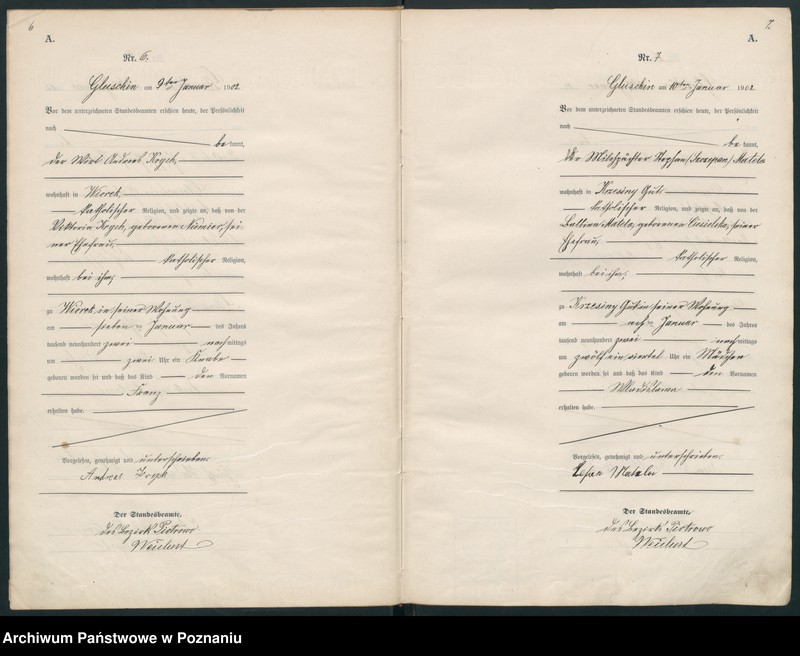 6
A.
Nr. 6.
Gluschin am 9ten Januar 1902
Vor dem unterzeichneten Standesbeamten erschien heute, der Persönlichkeit
nach
bekannt,
der Wirt Andreas
wohnhaft in Wiorek
katholischer Religion, und zeigte an, daß von der
Viktoria geborenen sei
ner Ehefrau,
katholischer Religion,
wohnhaft bei ihm,
zu Wiorek in seiner Wohnung
am sieben ten Januar des Jahres
tausend neunhundert zwei nachmittags
um zwei Uhr ein Knabe
geboren worden sei und daß das Kind den Vornamen
Franz
erhalten habe.
Vorgelesen, genehmigt und unterschrieben.
Andreas
Der Standesbeamte.
des Bezirk Piotrowo
Weichert
7.
A.
Nr. 7
Gluschin am 10ten Januar 1902
Vor dem unterzeichneten Standesbeamten erschien heute, der Persönlichkeit
nach
bekannt,
der Milchpächter Stephan (Szczepan) Matela
wohnhaft in Krzesiny Gut
katholischer Religion, und zeigte an, daß von der
Matela, geborenen Ciesielska, seiner
Ehefrau,
katholischer Religion,
wohnhaft bei ihm,
zu Krzesiny Gut in seiner Wohnung
am acht ten Januar des Jahres
tausend neunhundert zwei nachmittags
um zwölf ein viertel Uhr ein Mädchen
geboren worden sei und daß das Kind den Vornamen
Wladislawa
erhalten habe.
Vorgelesen, genehmigt und unterschrieben.
Der Standesbeamte.
des Bezirk Piotrowo
Weichert
Archiwum Państwowe w Poznaniu